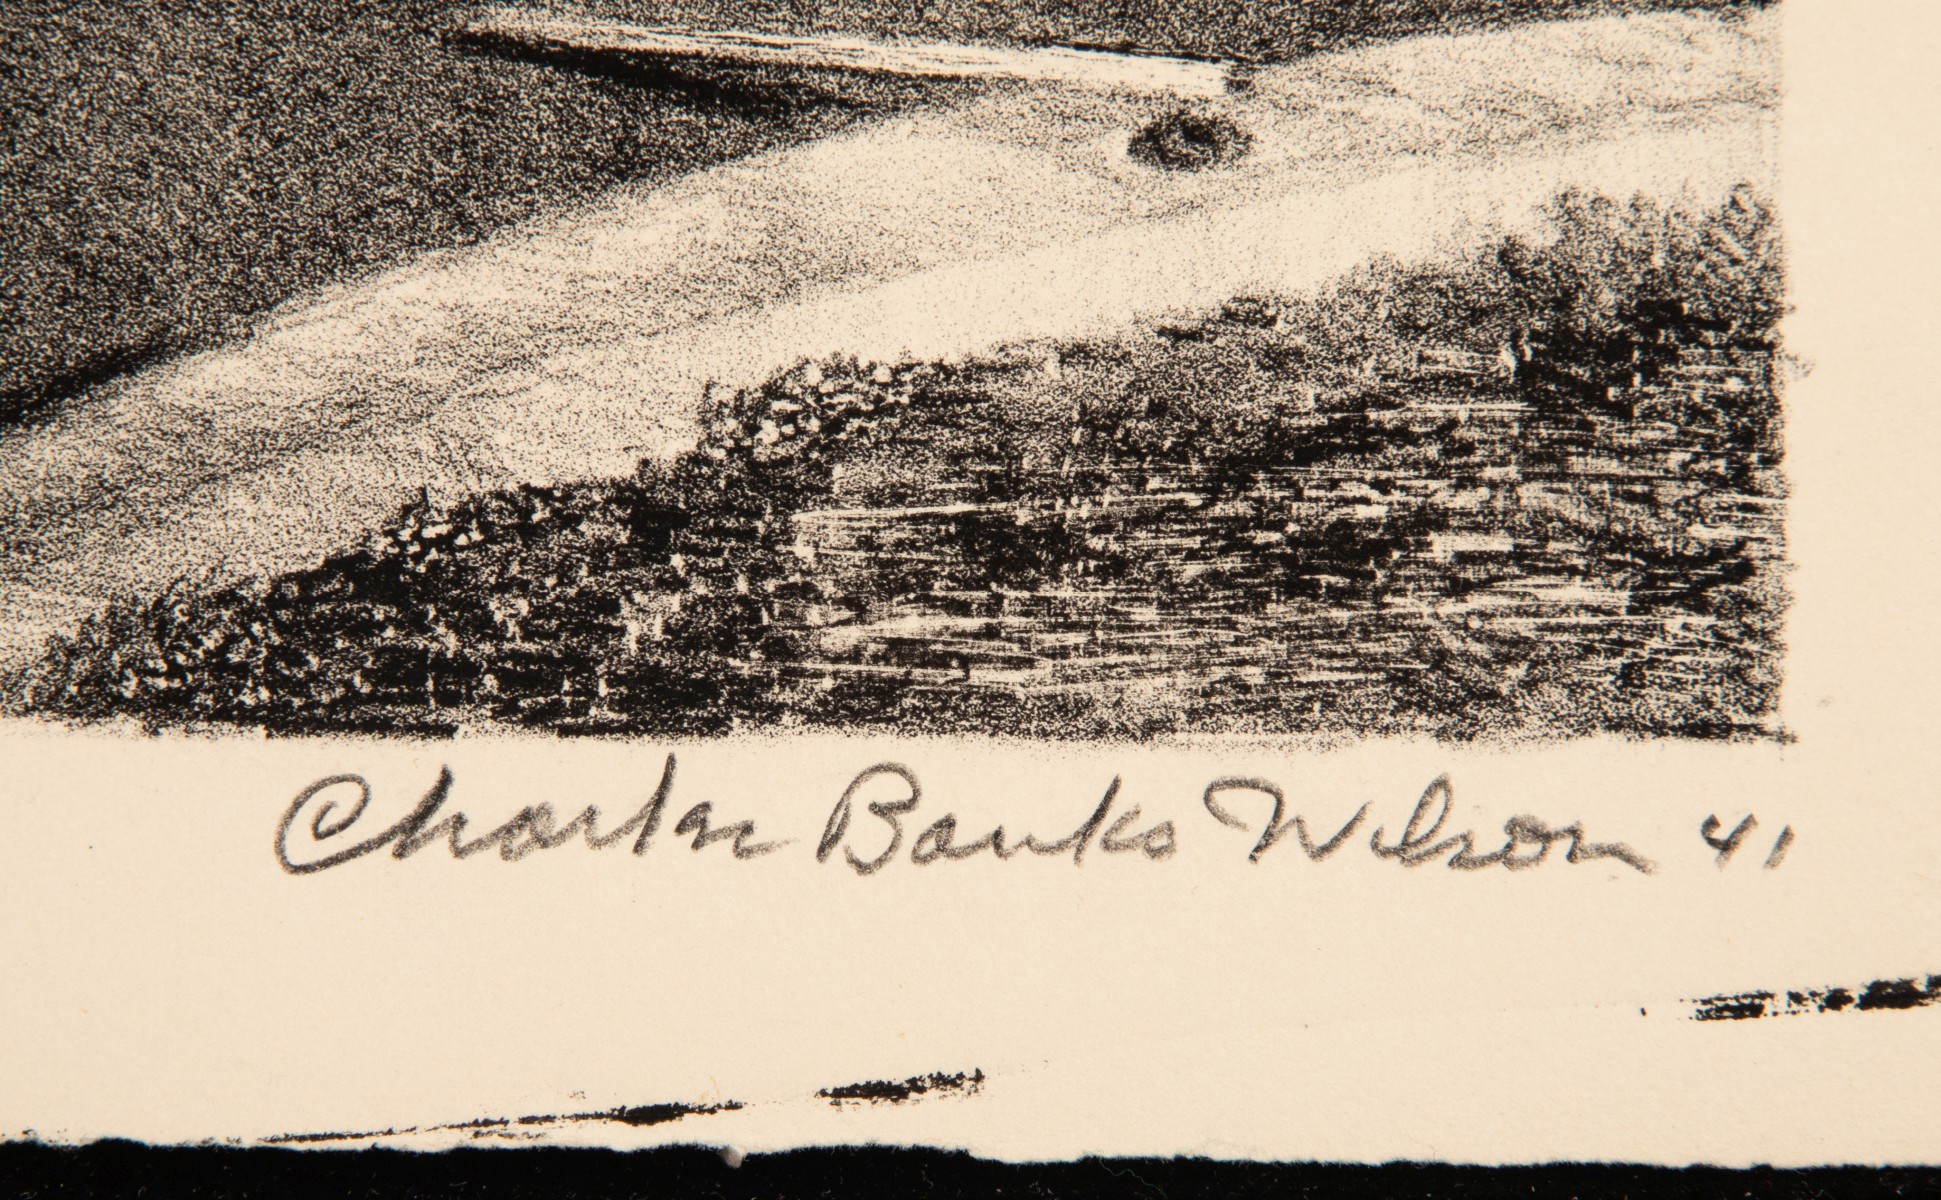 Charles Banks Wilson 41